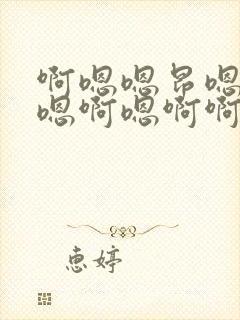 啊嗯嗯昂嗯
嗯啊嗯啊啊
惠婷